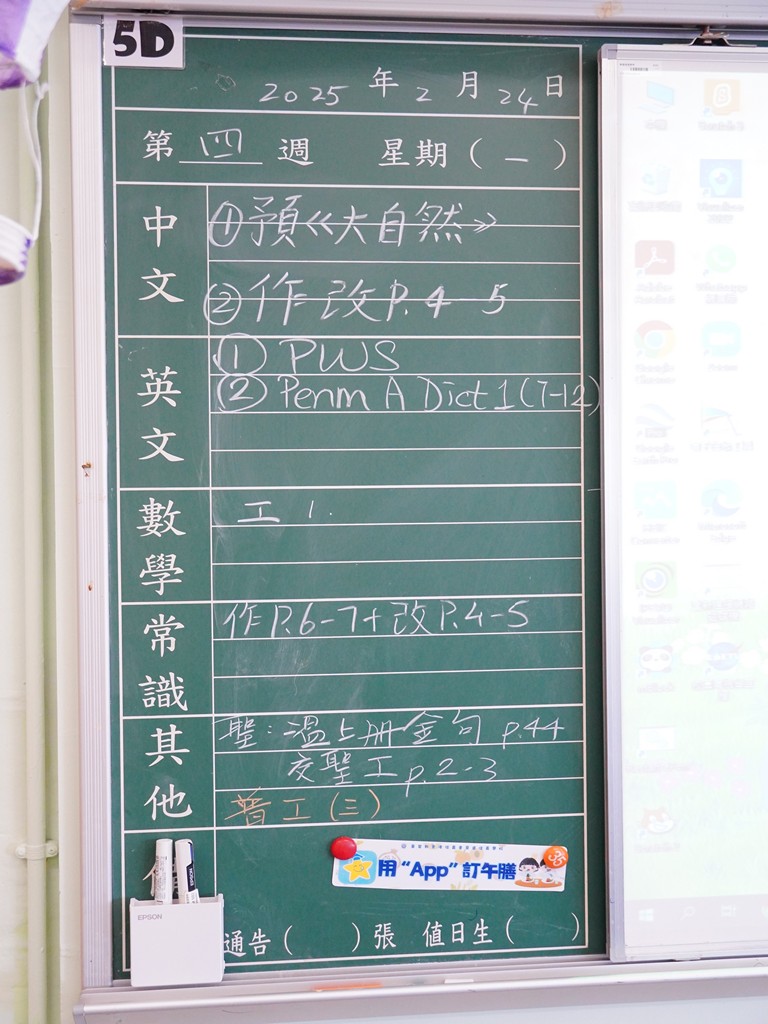 5D
2025 年 2 月 24 日
第 四 週 星期 ( 一 )
中文
①預《大自然》
②作改P.4-5
英文
① PWS
② Penm A Dict 1 (7-12)
數學
工 1.
常識
作P.6-7+改P.4-5
其他
聖：溫上冊金句 p.44
交聖工 p.2-3
普工(三)
用“App”訂午膳
EPSON
通告 ( ) 張 值日生 ( )